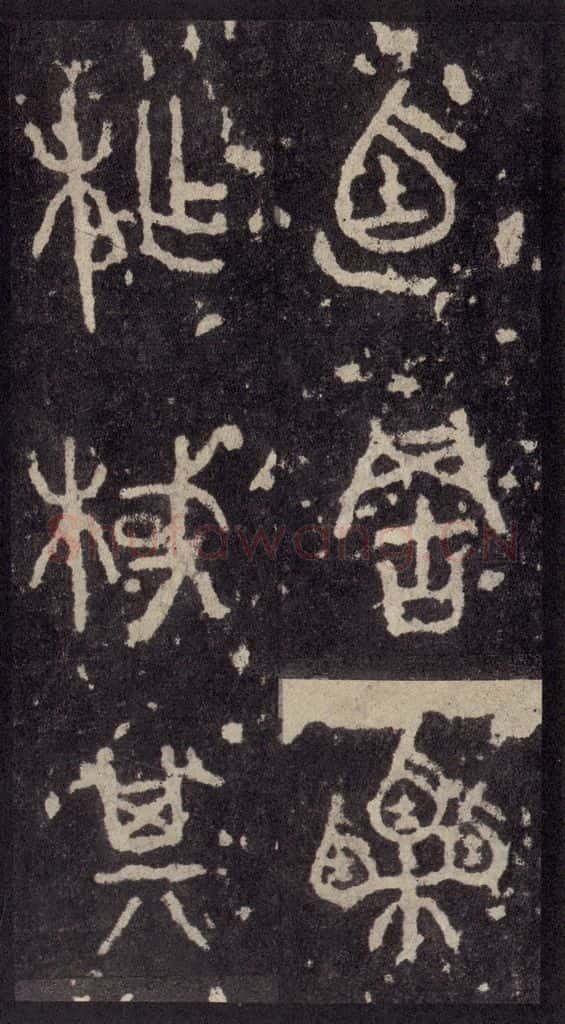 逌罟栗
柞棫其
Shufawang.CN